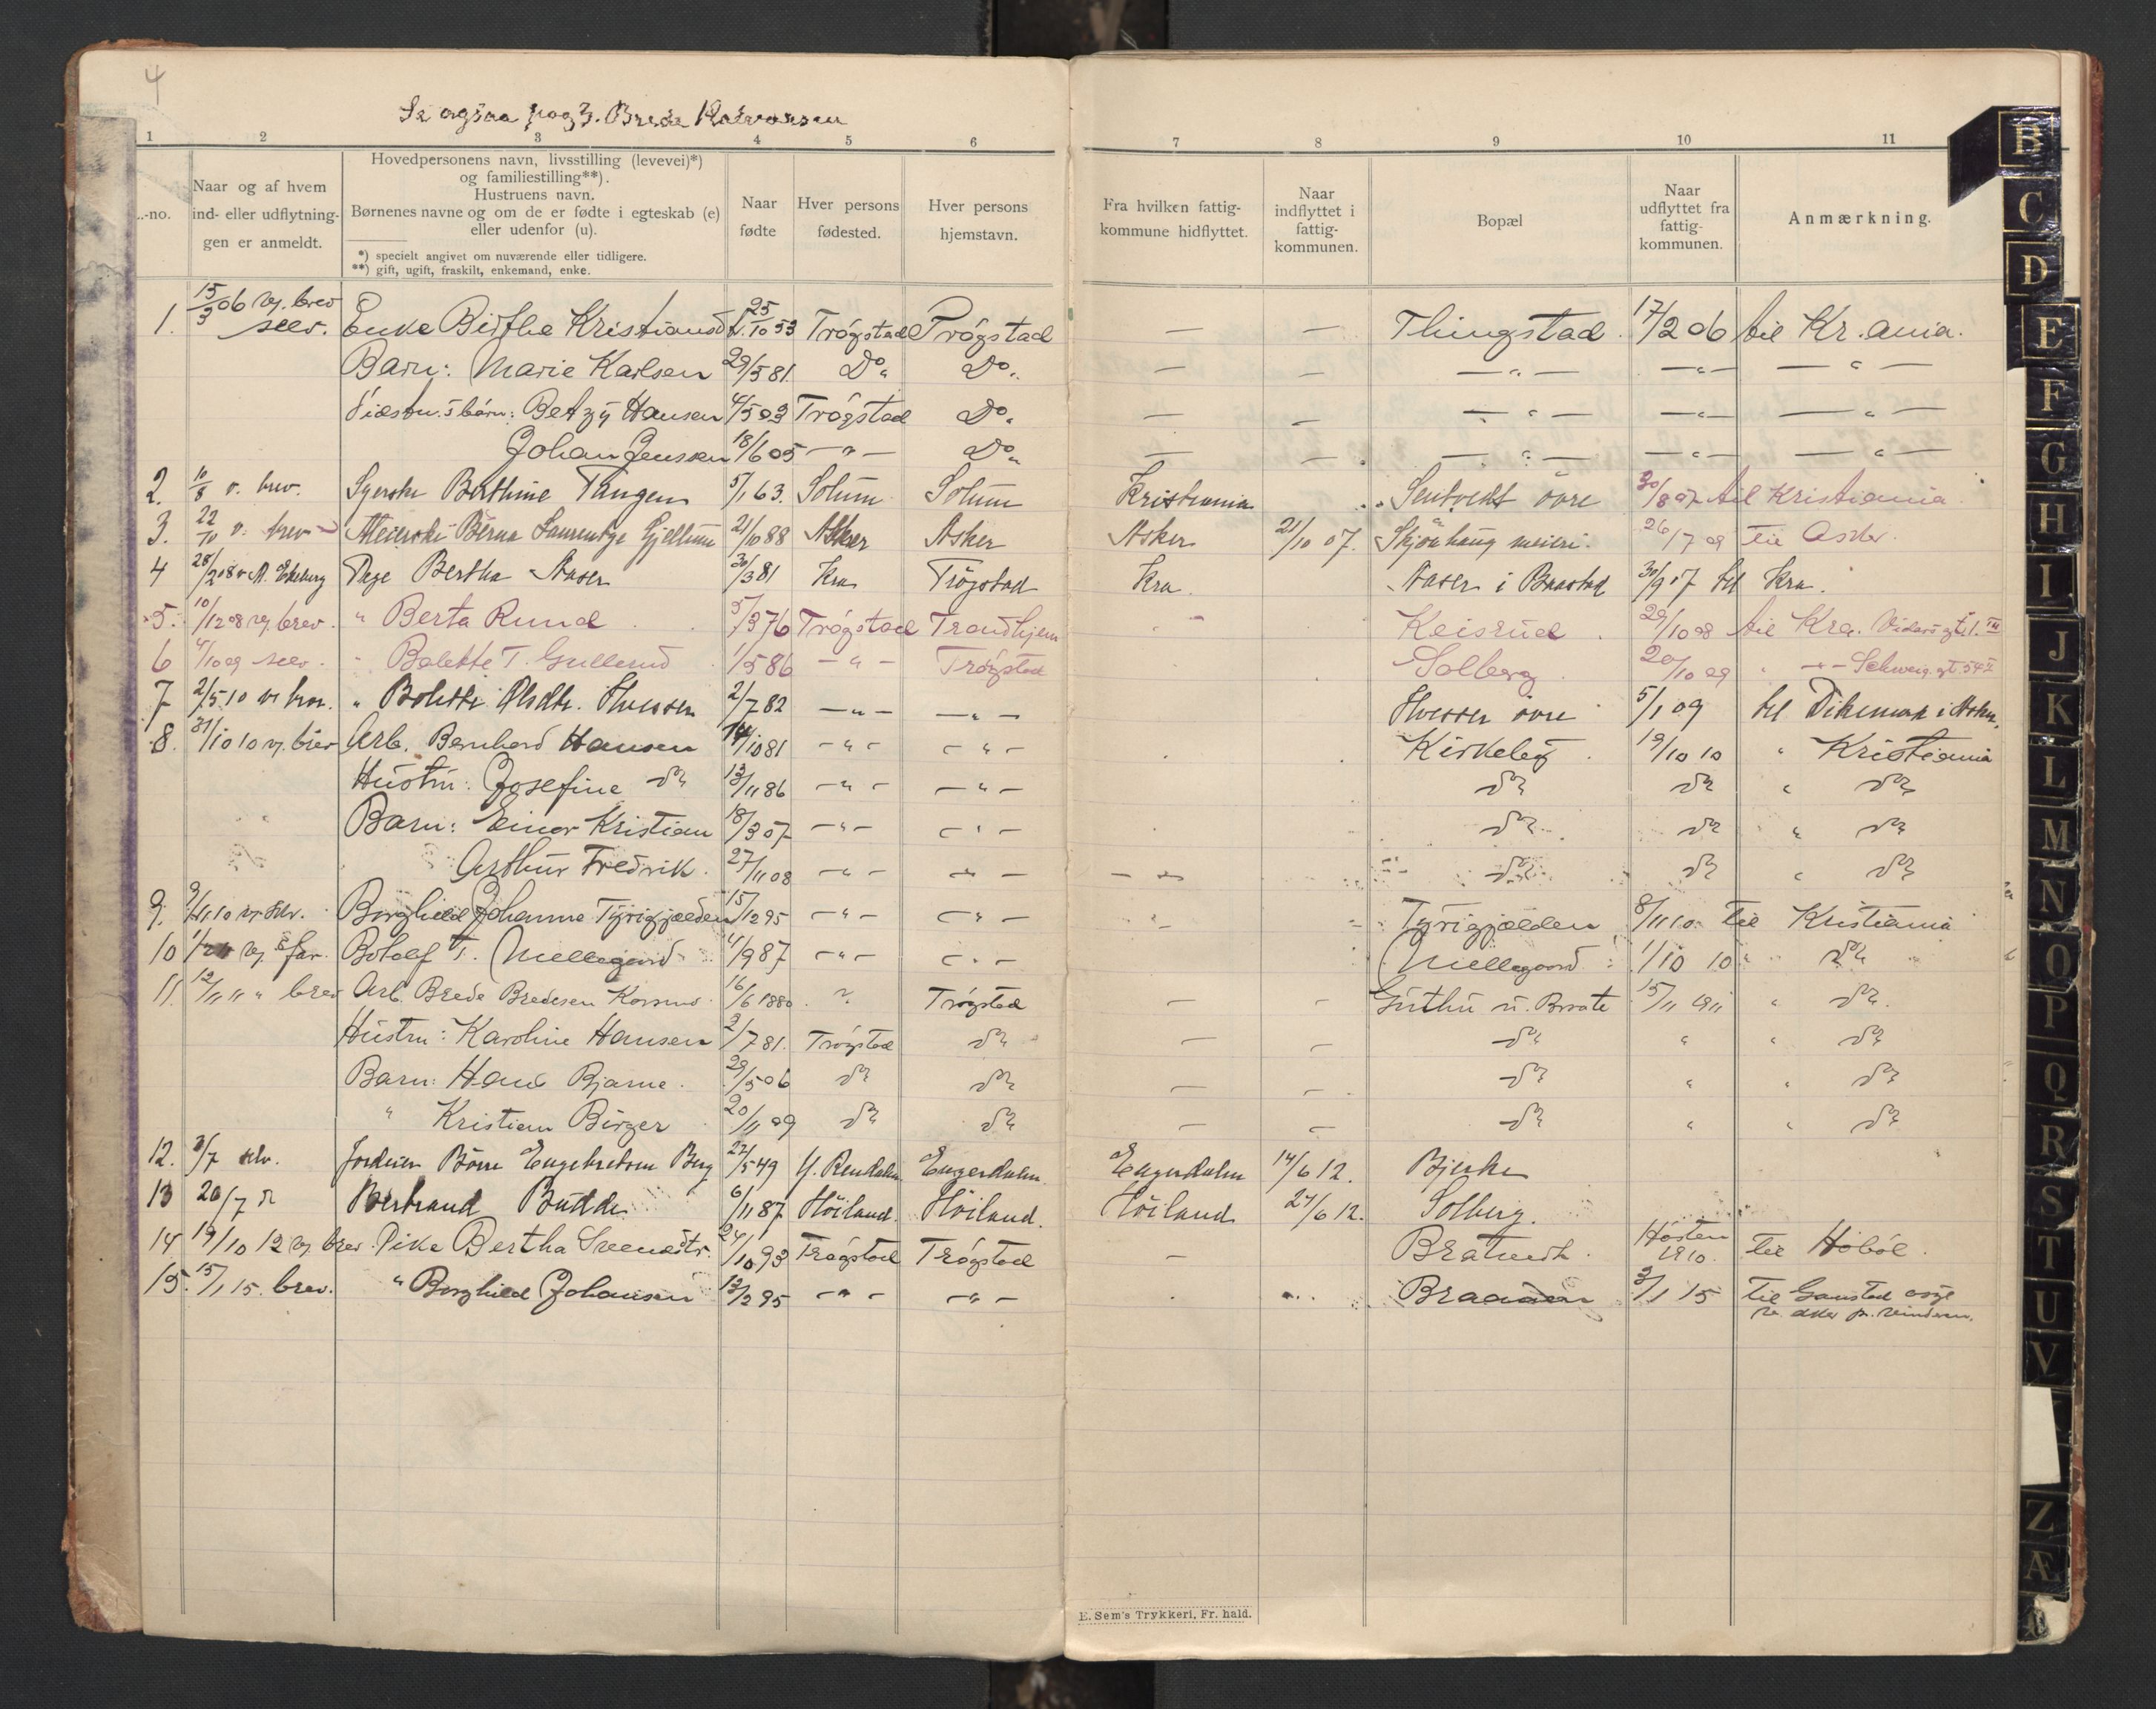 4
Se ogsaa pag 3. Brede
1 2 3 4 5 6 7 8 9 10 11
..-no.
Naar og af hvem
ind- eller udflytnin-
gen er anmeldt.
Hovedpersonens navn, livsstilling (levevei)*)
og familiestilling**).
Hustruens navn.
Børnenes navne og om de er fødte i egteskab (e)
eller udenfor (u).
*) specielt angivet om nuværende eller tidligere.
**) gift, ugift, fraskilt, enkemand, enke.
Naar
fødte
Hver persons
fødested.
Hver persons
hjemstavn.
Fra hvilken fattig-
kommune hidflyttet.
Naar
indflyttet i
fattig-
kommunen.
Bopæl
Naar
udflyttet fra
fattig-
kommunen.
Anmærkning.
1. 15/3 06 v. brev selv. Enke Birthe Kristiansd. 25/10 53 Trøgstad Trøgstad — — Thingstad 17/2 06 til Kr.ania.
Barn: Marie Karlsen 29/5 81 Do. Do. — — — " — — " — — " —
børn: Betzy Hansen 4/5 03 Trøgstad Do. — — — " — — " — — " —
Johan Jenssen 18/6 05 — " — Do. — — — " — — " — — " —
2. 10/8 v. brev. Syerske Berthine Tangen 5/1 63. Solum Solum Kristiania Sentvedt övre 30/8 07 til Kristiania
3. 22/10 v. brev Meierske Berna Laurentze Gjellum 21/10 88 Asker Asker Asker 21/10 07. Skjönhaug meieri. 26/7 09 til Asker.
4 28/2 08 v. A. Ekeberg Pige Bertha Aaser 30/3 81 Kra Trögstad Kra. Aaser i Baastad 30/9 07 til Kra.
5. 10/12 08 v. brev. " Berta Rund 5/3 76 Trøgstad Trondhjem Keisrud 29/10 08 til Kra.
6 4/10 09 selv. " Bolette T. Gullerud 1/5 86 — " — Trøgstad Solberg 20/10 09 " — " — Schweig. gt. 54
7 2/5 10 v. brev. " Bolette Olsdtr. Hvesser 2/7 82 — " — — " — Hvesser övre 5/1 09 til Dikemark i Asker.
8. 31/10 10 v. brev Arb. Bernhard Hansen 14/10 81 — " — — " — Kirkeby 19/10 10 " Kristiania
Hustru: Josefine do 13/11 86 — " — — " — do do " do
Barn: Einar Kristian 18/3 07 — " — — " — do do " do
Arthur Fredrik. 27/11 08 — " — — " — do do " do
9. 9/11 10 v. selv. Borghild Johanne Tyrigjælden 15/12 95 — " — — " — Tyrigjælden 8/11 10. til Kristiania
10 v. far. Botolf T. Mellegaard 4/9 87 — " — — " — Mellegaard 1/10 10 " do
11. 12/11 11 " brev Arb. Brede Bredesen 16/6 1880 " Trøgstad — — Guthu u. Braate 15/11 1911 " do.
Hustru: Karoline Hansen 2/7 81. Trøgstad do — — do " " do
Barn: Hans Bjarne. 29/5 06 do do — — do " " do
" Kristian Birger 20/11 09 do do — — do " " do
12. 3/7 selv. Börre Engebretsen Berg 27/5 49 Y. Rendalen Engerdalen Engerdalen 14/6 12. Bjerke
13 20/7 Bertrand Budde 6/11 87 Höiland. Höiland. Höiland 27/6 12. Solberg.
14 19/10 12 v. brev. Pike Bertha Svendsdtr. 24/10 93 Trøgstad Trøgstad — Bratvedt. Høsten 1910. til Hobøl.
15. 15/1 15. brev. " Borghild Johansen 13/2 95 — " — — " — Braaten 3/1 15 til Gaustad
E. Sem's Trykkeri, Fr. hald.
B
C
D
E
F
G
H
I
J
K
L
M
N
O
P
Q
R
S
T
U
V
Z
Æ